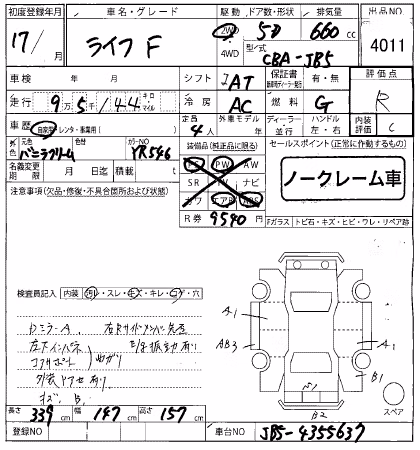 初度登録年月 車名・グレード 駆動 ドア数・形状 排気量 出品NO
17/ 月 ライフ F 2WD 4WD 5D 660 cc 4011
型/式 CBA-JB5
車検 年 月 シフト AT 保証書 有・無 評価点
走行 9万5千144 キロ マイル 冷房 AC 燃料 G R
車歴 自家用・レンタ・事業用( ) 定員 4人 外車モデル 年 ディーラー 並行 ハンドル 左・右 内装評価 C
外色 元色 バニラクリーム 色替 カラーNO YR546 装備品(純正品に限る) セールスポイント(正常に作動するもの)
名義変更期限 月 日迄 積載 t PS PW AW
SR TV ナビ
カワ エアB ABS
ノークレーム車
注意事項(欠品・修復・不具合箇所および状態)
R券 9540 円
Fガラス・トビ石・キズ・ヒビ・ワレ・リペア跡
検査員記入 内装 汚レ・スレ・キズ・キレ・コゲ・穴
DミラーA
左下インパネ
コアサポート 曲がり
E/G振動有り
外装ドアセ有り
キズ、B.
A1
AB3
A1
B1
B2
スペア
長さ 339 cm 幅 147 cm 高さ 157 cm
登録NO 車台NO JB5-4355637